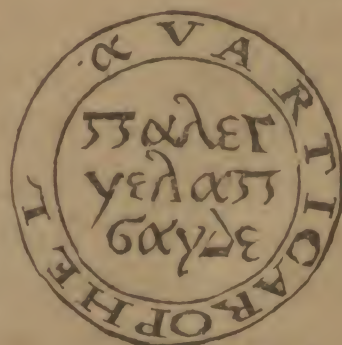 αVARTICAROPHEL
παλεγ
γελαπ
σαγδε